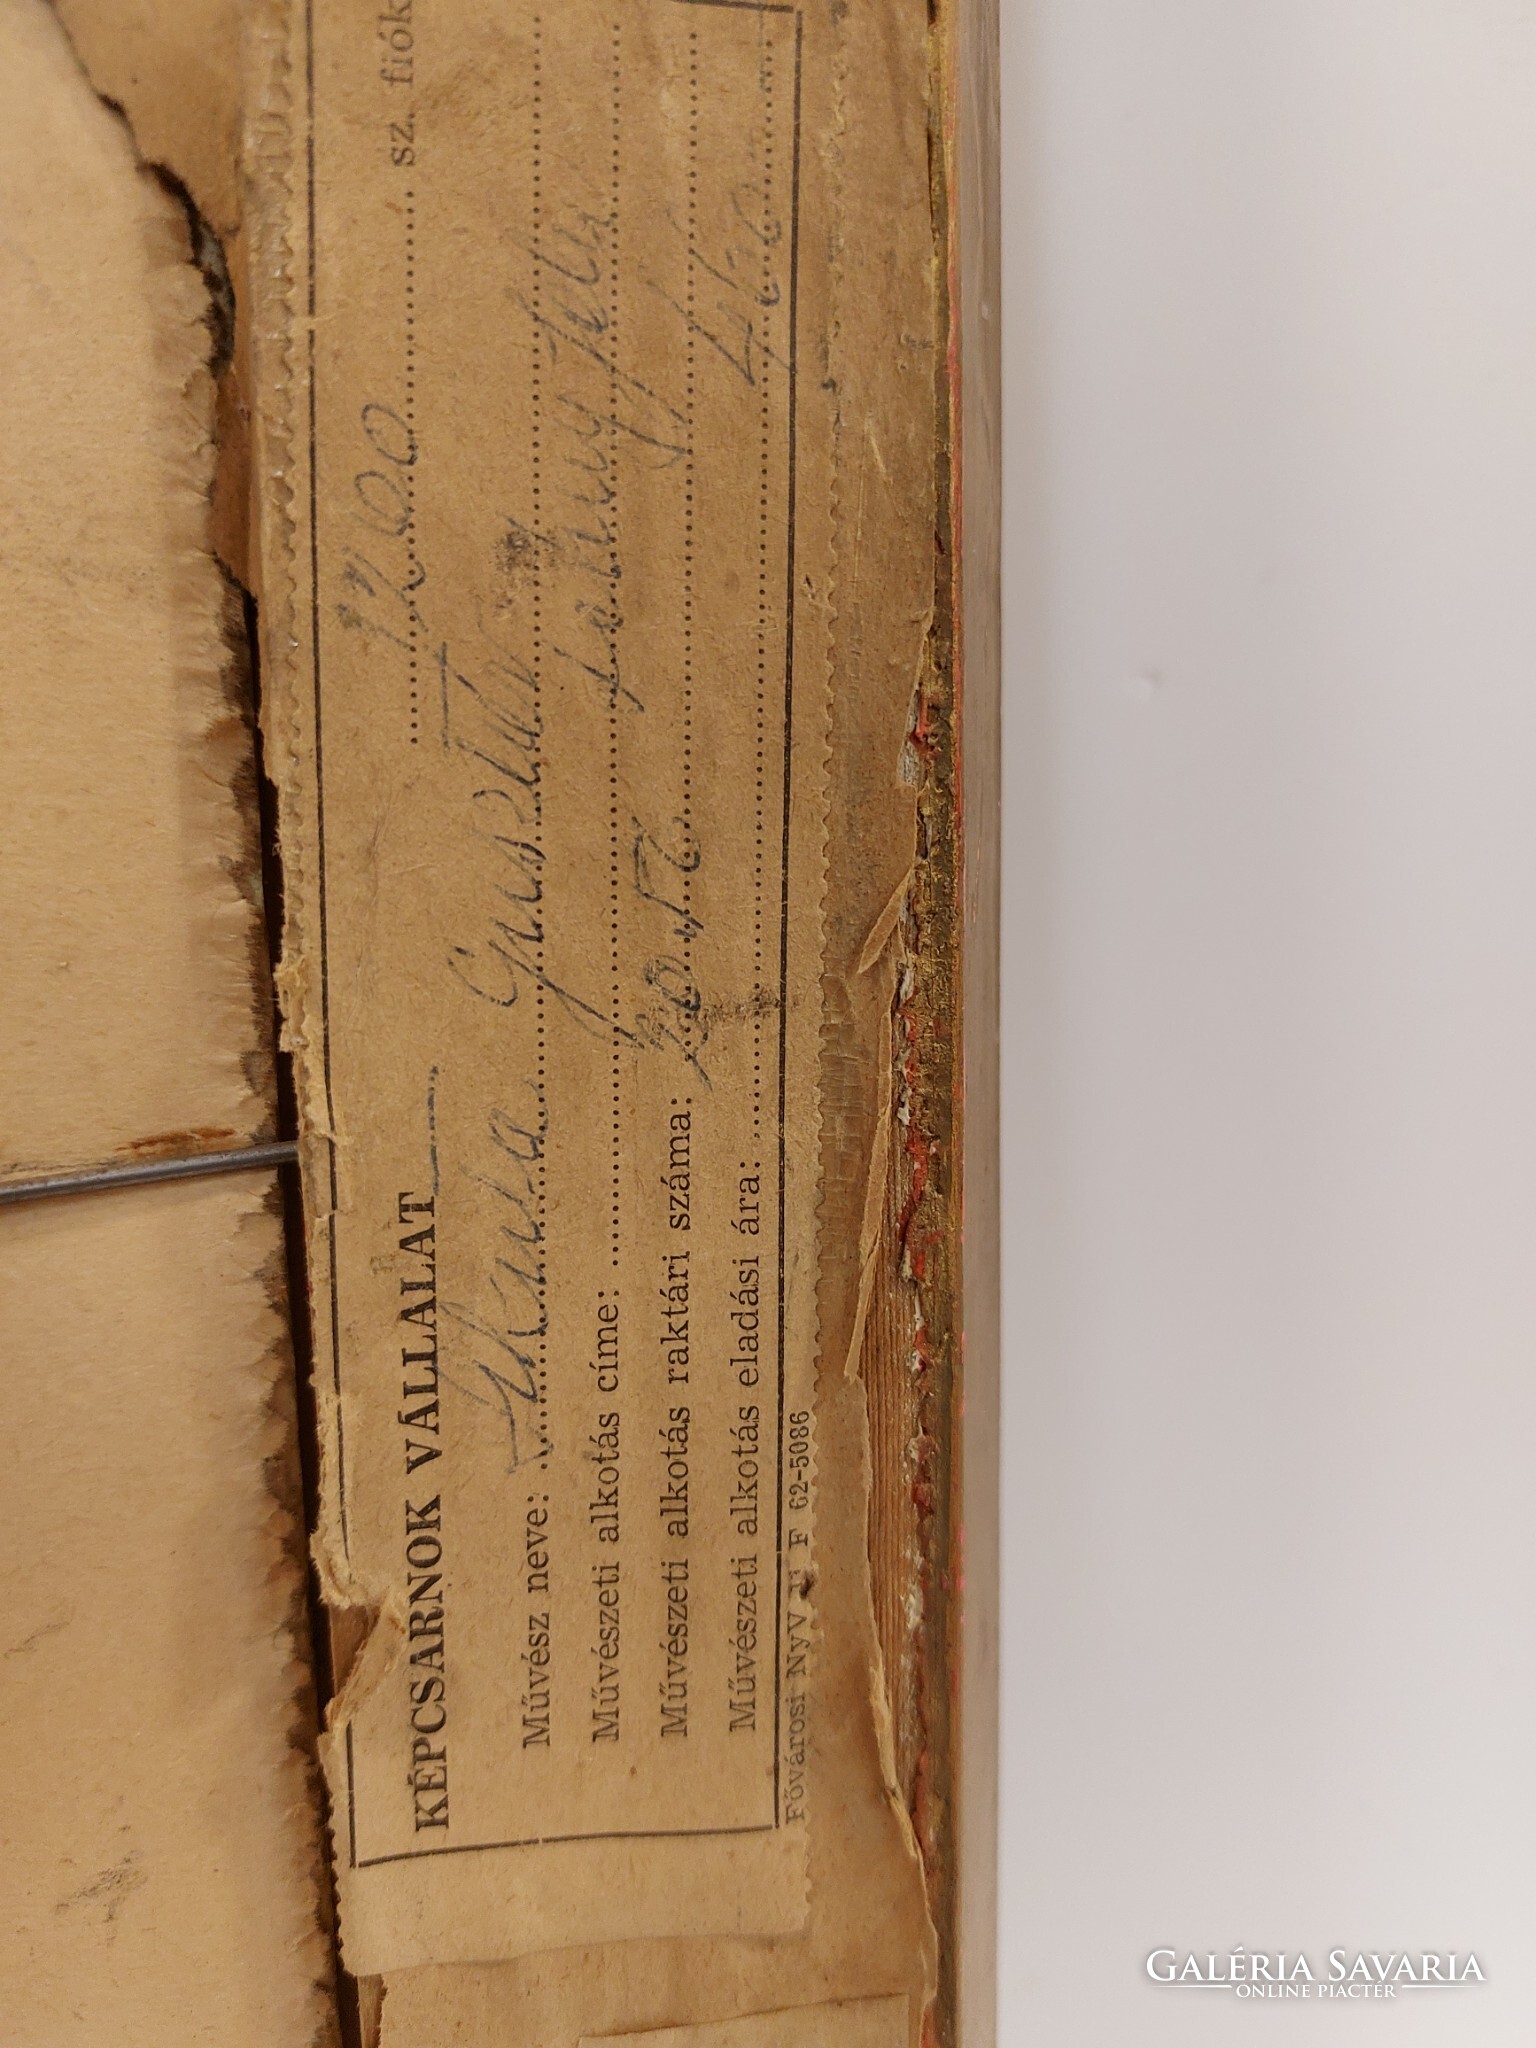 KÉPCSARNOK VÁLLALAT 1200 sz. fiók
Művész neve: Sikula Gusztáv
Művészeti alkotás címe:
Művészeti alkotás raktári száma:
Művészeti alkotás eladási ára: 460
Fővárosi NyV 11 F 62-5086
GALÉRIA SAVARIA
ONLINE PIACTÉR